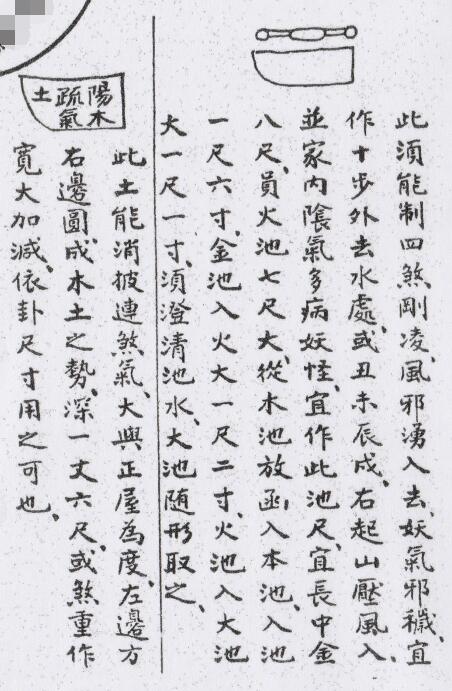 此須能制四煞剛凌、風邪湧入去、妖氣邪穢、宜
作十步外去水處、或丑未辰戍、右起山壓風入、
並家内陰氣多病妖怪、宜作此池尺、宜長中金
八尺、員火池七尺大、從木池放函入本池、入池
一尺六寸、金池入火大一尺二寸、火池入大池
大一尺一寸、須澄清池水、大池随形取之、
陽木
疏氣
土
此土能消披連煞氣、大與正屋為度、左邊方
右邊圓、成木土之勢、深一丈六尺、或煞重作
寬大加减、依卦尺寸用之可也、